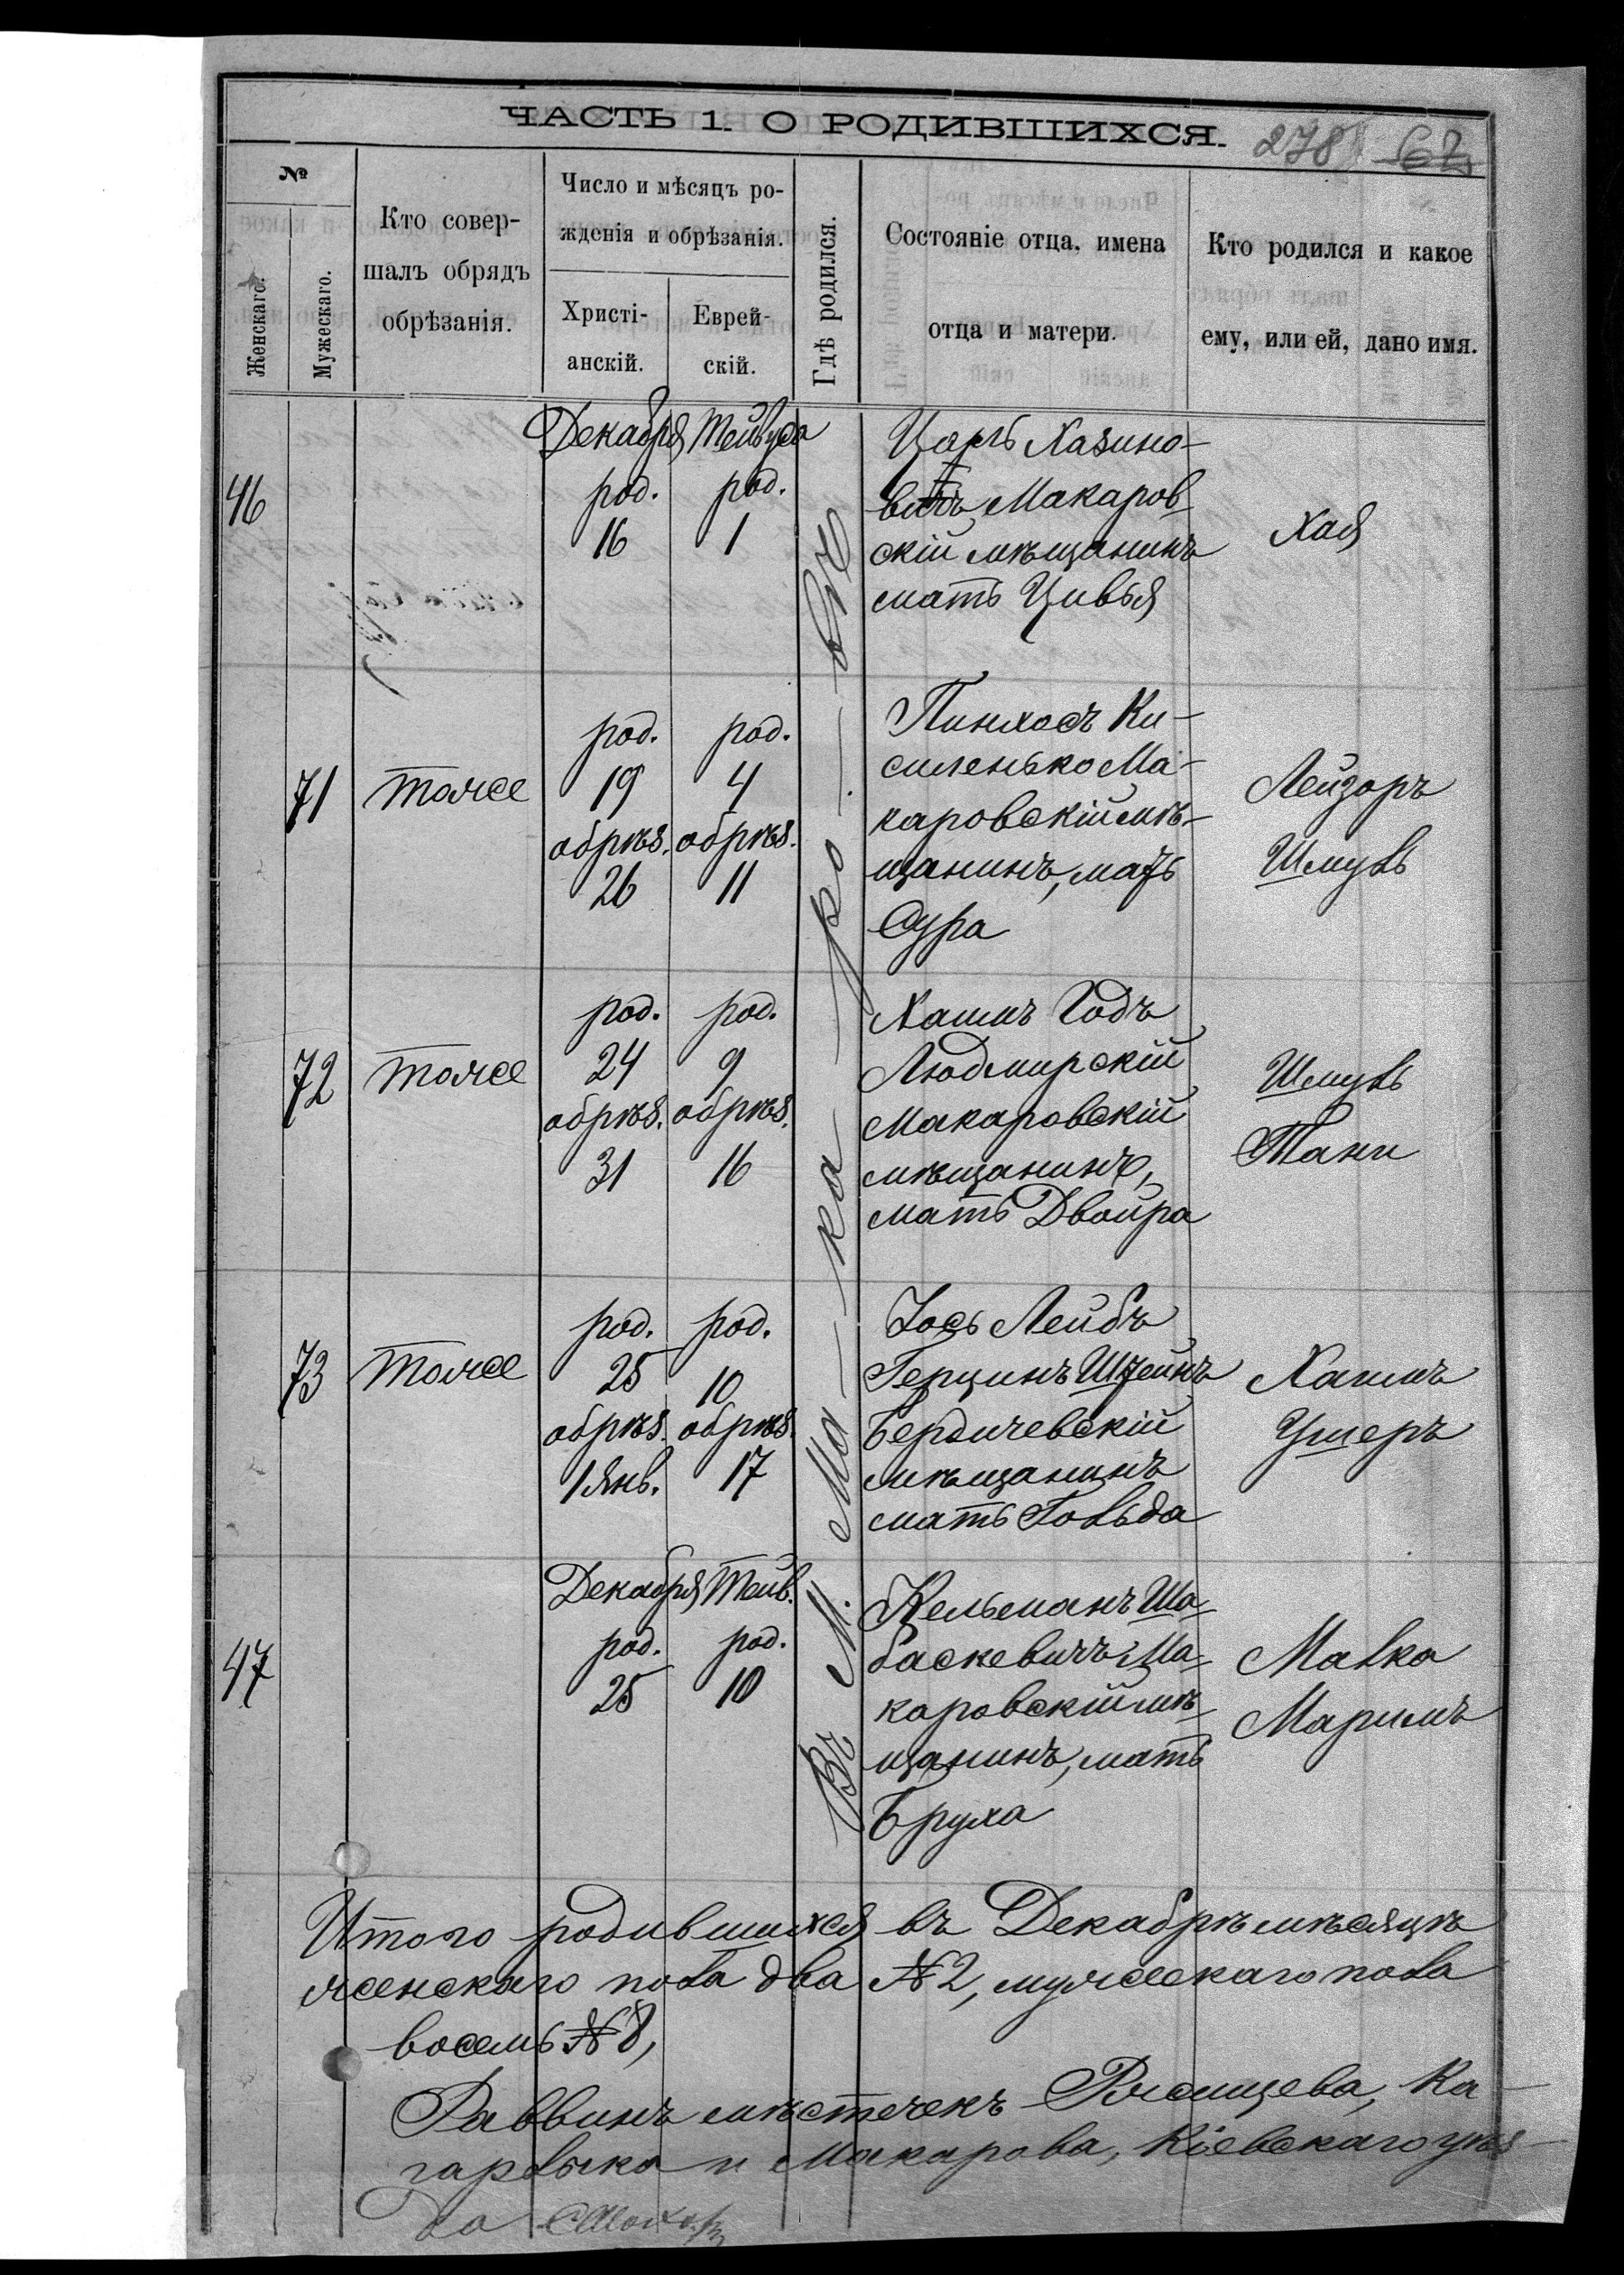 ЧАСТЬ 1. О РОДИВШИХСЯ.
278 62
№
Женскаго.
Мужескаго.
Кто совер-
шалъ обрядъ
обрѣзанія.
Число и мѣсяцъ ро-
жденія и обрѣзанія.
Христі-
анскій.
Еврей-
скій.
Гдѣ родился.
Состояніе отца, имена
отца и матери.
Кто родился и какое
ему, или ей, дано имя.
Въ М. Ма-ка-ро-вѣ
46
Декабря
род.
16
род.
1
Хазино-
вичъ, Макаров
скій мѣщанинъ
мать Цивья
Хая
71
тоже
род.
19
обрѣз.
26
род.
4
обрѣз.
11
Пинхосъ Ки-
силенько Ма-
каровскій мѣ-
щанинъ, мать
Сура
Лейзоръ
Шмуль
72
тоже
род.
24
обрѣз.
31
род.
9
обрѣз.
16
Хаимъ Годъ
Людмирскій
Макаровскій
мѣщанинъ,
мать Двойра
Шмуль
Тани
73
тоже
род.
25
обрѣз.
1 Янв.
род.
10
обрѣз.
17
Іось Лейбъ
Герцинъ Штейнъ
Бердичевскій
мѣщанинъ
мать Гольда
Хаимъ
Ушеръ
47
Декабря
род.
25
Тейв.
род.
10
Кельманъ Ша-
баскевичъ Ма-
каровскій мѣ-
щанинъ, мать
Бруха
Малка
Маримъ
Итого родившихся въ Декабрѣ мѣсяцѣ
женскаго пола два № 2, мужескаго пола
восемь № 8,
Раввинъ мѣстечекъ Ржищева, Ка-
гарлыка и Макарова, Кіевскаго уѣз-
да